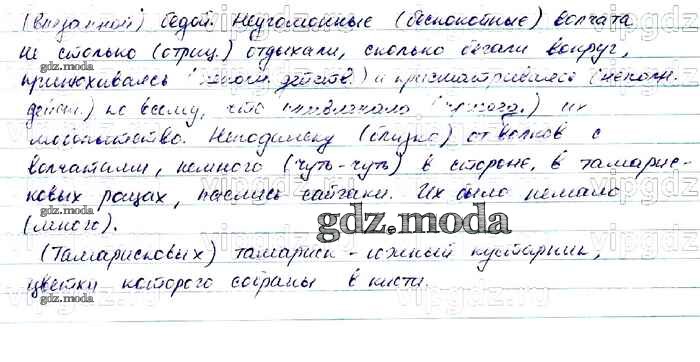 (внезапной) бедой. Неугомонные (беспокойные) волчата
не столько (отриц.) отдыхали, сколько бегали вокруг,
принюхиваясь действ.) и присматриваясь (неполн.
действ.) ко всему, что привлекало их
любопытство. Неподалеку (близко) от волков с
волчатами, немного (чуть-чуть) в стороне, в тамарис-
ковых рощах, паслись сайгаки. Их было немало
(много).
gdz.moda
(Тамарисковых) тамариск - южный кустарник,
цветки которого собраны в кисти.
gdz.moda